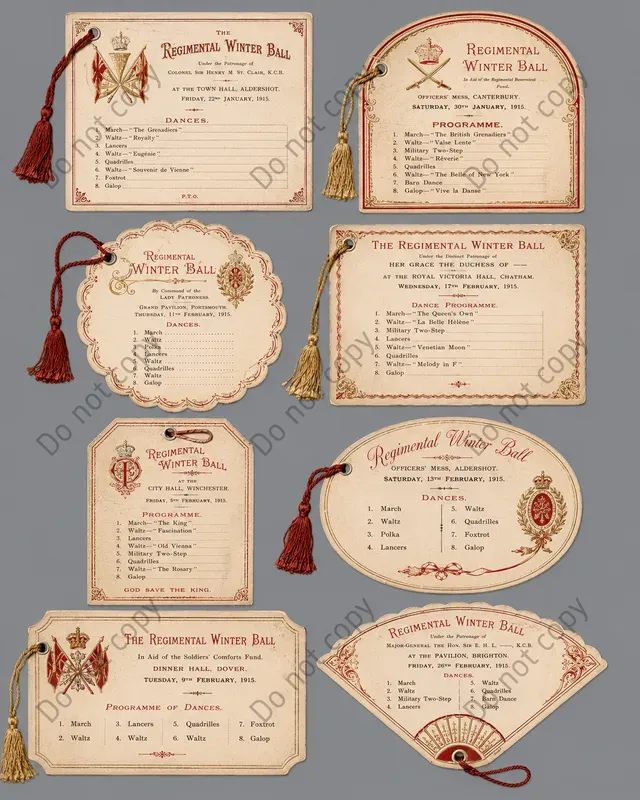 THE
REGIMENTAL WINTER BALL
Under the Patronage of
COLONEL SIR HENRY M. ST. CLAIR, K.C.B.
AT THE TOWN HALL, ALDERSHOT.
FRIDAY, 22ND JANUARY, 1915.
DANCES.
1. March—"The Grenadiers"
2. Waltz—"Royalty"
3. Lancers
4. Waltz—"Eugénie"
5. Quadrilles
6. Waltz—"Souvenir de Vienne"
7. Foxtrot
8. Galop
P.T.O.
REGIMENTAL
WINTER BALL
In Aid of the Regimental Benevolent
Fund.
OFFICERS' MESS, CANTERBURY.
SATURDAY, 30TH JANUARY, 1915.
PROGRAMME.
1. March—"The British Grenadiers"
2. Waltz—"Valse Lente"
3. Military Two-Step
4. Waltz—"Rêverie"
5. Quadrilles
6. Waltz—"The Belle of New York"
7. Barn Dance
8. Galop—"Vive la Danse"
REGIMENTAL
WINTER BALL
By Command of the
LADY PATRONESS.
GRAND PAVILION, PORTSMOUTH.
THURSDAY, 11TH FEBRUARY, 1915.
DANCES.
1. March
2. Waltz
3. Polka
4. Lancers
5. Waltz
6. Quadrilles
7. Waltz
8. Galop
THE REGIMENTAL WINTER BALL
Under the Distinct Patronage of
HER GRACE THE DUCHESS OF ——
AT THE ROYAL VICTORIA HALL, CHATHAM.
WEDNESDAY, 17TH FEBRUARY, 1915.
DANCE PROGRAMME.
1. March—"The Queen's Own"
2. Waltz—"La Belle Hélène"
3. Military Two-Step
4. Lancers
5. Waltz—"Venetian Moon"
6. Quadrilles
7. Waltz—"Melody in F"
8. Galop
REGIMENTAL
WINTER BALL
AT THE
CITY HALL, WINCHESTER.
FRIDAY, 5TH FEBRUARY, 1915.
PROGRAMME.
1. March—"The King"
2. Waltz—"Fascination"
3. Lancers
4. Waltz—"Old Vienna"
5. Military Two-Step
6. Quadrilles
7. Waltz—"The Rosary"
8. Galop
GOD SAVE THE KING.
Regimental Winter Ball
OFFICERS' MESS, ALDERSHOT.
SATURDAY, 13TH FEBRUARY, 1915.
DANCES.
1. March 5. Waltz
2. Waltz 6. Quadrilles
3. Polka 7. Foxtrot
4. Lancers 8. Galop
THE REGIMENTAL WINTER BALL
In Aid of the Soldiers' Comforts Fund.
DINNER HALL, DOVER.
TUESDAY, 9TH FEBRUARY, 1915.
PROGRAMME OF DANCES.
1. March 3. Lancers 5. Quadrilles 7. Foxtrot
2. Waltz 4. Waltz 6. Waltz 8. Galop
REGIMENTAL WINTER BALL
Under the Patronage of
MAJOR-GENERAL THE HON. SIR E. H. L. ——, K.C.B.
AT THE PAVILION, BRIGHTON.
FRIDAY, 26TH FEBRUARY, 1915.
DANCES.
1. March 5. Waltz
2. Waltz 6. Quadrilles
3. Military Two-Step 7. Barn Dance
4. Lancers 8. Galop
Do not copy
Do not copy
Do not copy
Do not copy
Do not copy
Do not copy
Do not copy
Do not copy
Do not copy